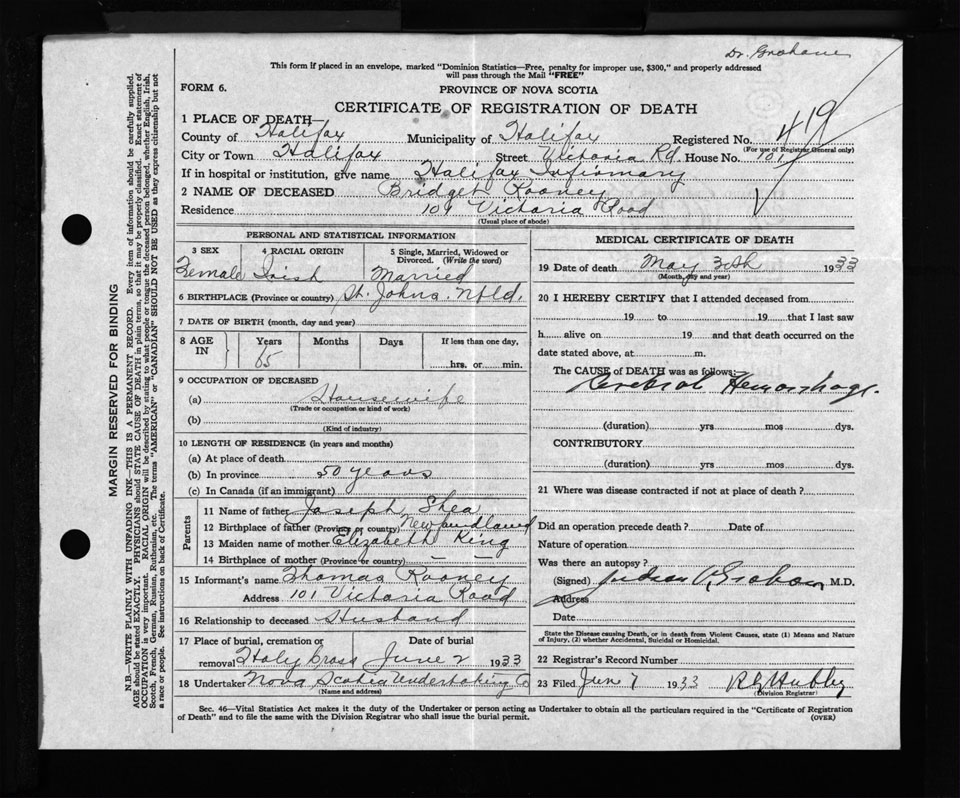 Dr. Graham
This form if placed in an envelope, marked "Dominion Statistics—Free, penalty for improper use, $300," and properly addressed
will pass through the Mail "FREE"
FORM 6.
PROVINCE OF NOVA SCOTIA
CERTIFICATE OF REGISTRATION OF DEATH
1 PLACE OF DEATH—
County of Halifax Municipality of Halifax Registered No. 419
(For use of Registrar General only)
City or Town Halifax Street Victoria Rd. House No. 101
If in hospital or institution, give name Halifax Infirmary
2 NAME OF DECEASED Bridget Rooney
Residence 101 Victoria Road
(Usual place of abode)
PERSONAL AND STATISTICAL INFORMATION
3 SEX Female
4 RACIAL ORIGIN Irish
5 Single, Married, Widowed or Divorced. (Write the word) Married
6 BIRTHPLACE (Province or country) St. Johns. Nfld.
7 DATE OF BIRTH (month, day and year)
8 AGE IN Years Months Days If less than one day,
65 hrs. or min.
9 OCCUPATION OF DECEASED
(a) Housewife
(Trade or occupation or kind of work)
(b)
(Kind of industry)
10 LENGTH OF RESIDENCE (in years and months)
(a) At place of death
(b) In province 50 years
(c) In Canada (if an immigrant)
Parents
11 Name of father Joseph Shea
12 Birthplace of father (Province or country) Newfoundland
13 Maiden name of mother Elizabeth King
14 Birthplace of mother (Province or country) — —
15 Informant's name Thomas Rooney
Address 101 Victoria Road
16 Relationship to deceased Husband
17 Place of burial, cremation or removal Holy Cross Date of burial June 2 1933
18 Undertaker Nova Scotia Undertaking Co
(Name and address)
MEDICAL CERTIFICATE OF DEATH
19 Date of death May 30th 1933
(Month, day and year)
20 I HEREBY CERTIFY that I attended deceased from
19 to 19 that I last saw
h alive on 19 and that death occurred on the
date stated above, at m.
The CAUSE of DEATH was as follows:—
Cerebral Hemorrhage.
(duration) yrs mos dys.
CONTRIBUTORY
(duration) yrs mos dys.
21 Where was disease contracted if not at place of death?
Did an operation precede death? Date of
Nature of operation
Was there an autopsy?
(Signed) Graham M.D.
Address
Date
State the Disease causing Death, or in death from Violent Causes, state (1) Means and Nature
of Injury, (2) whether Accidental, Suicidal or Homicidal.
22 Registrar's Record Number
23 Filed June 7 1933
(Division Registrar)
Sec. 46—Vital Statistics Act makes it the duty of the Undertaker or person acting as Undertaker to obtain all the particulars required in the "Certificate of Registration
of Death" and to file the same with the Division Registrar who shall issue the burial permit.
(OVER)
MARGIN RESERVED FOR BINDING
N.B.—WRITE PLAINLY WITH UNFADING INK—THIS IS A PERMANENT RECORD. Every item of information should be carefully supplied.
AGE should be stated EXACTLY. PHYSICIANS should STATE CAUSE OF DEATH in plain terms, so that it may be properly classified. Exact statement of
OCCUPATION is very important. RACIAL ORIGIN will be described by stating to what people or tongue the deceased person belonged, whether English, Irish,
Scotch, French, German, Russian, Ruthenian, etc. The terms "AMERICAN" or "CANADIAN" SHOULD NOT BE USED as they express citizenship but not
a race or people. See instructions on back of Certificate.